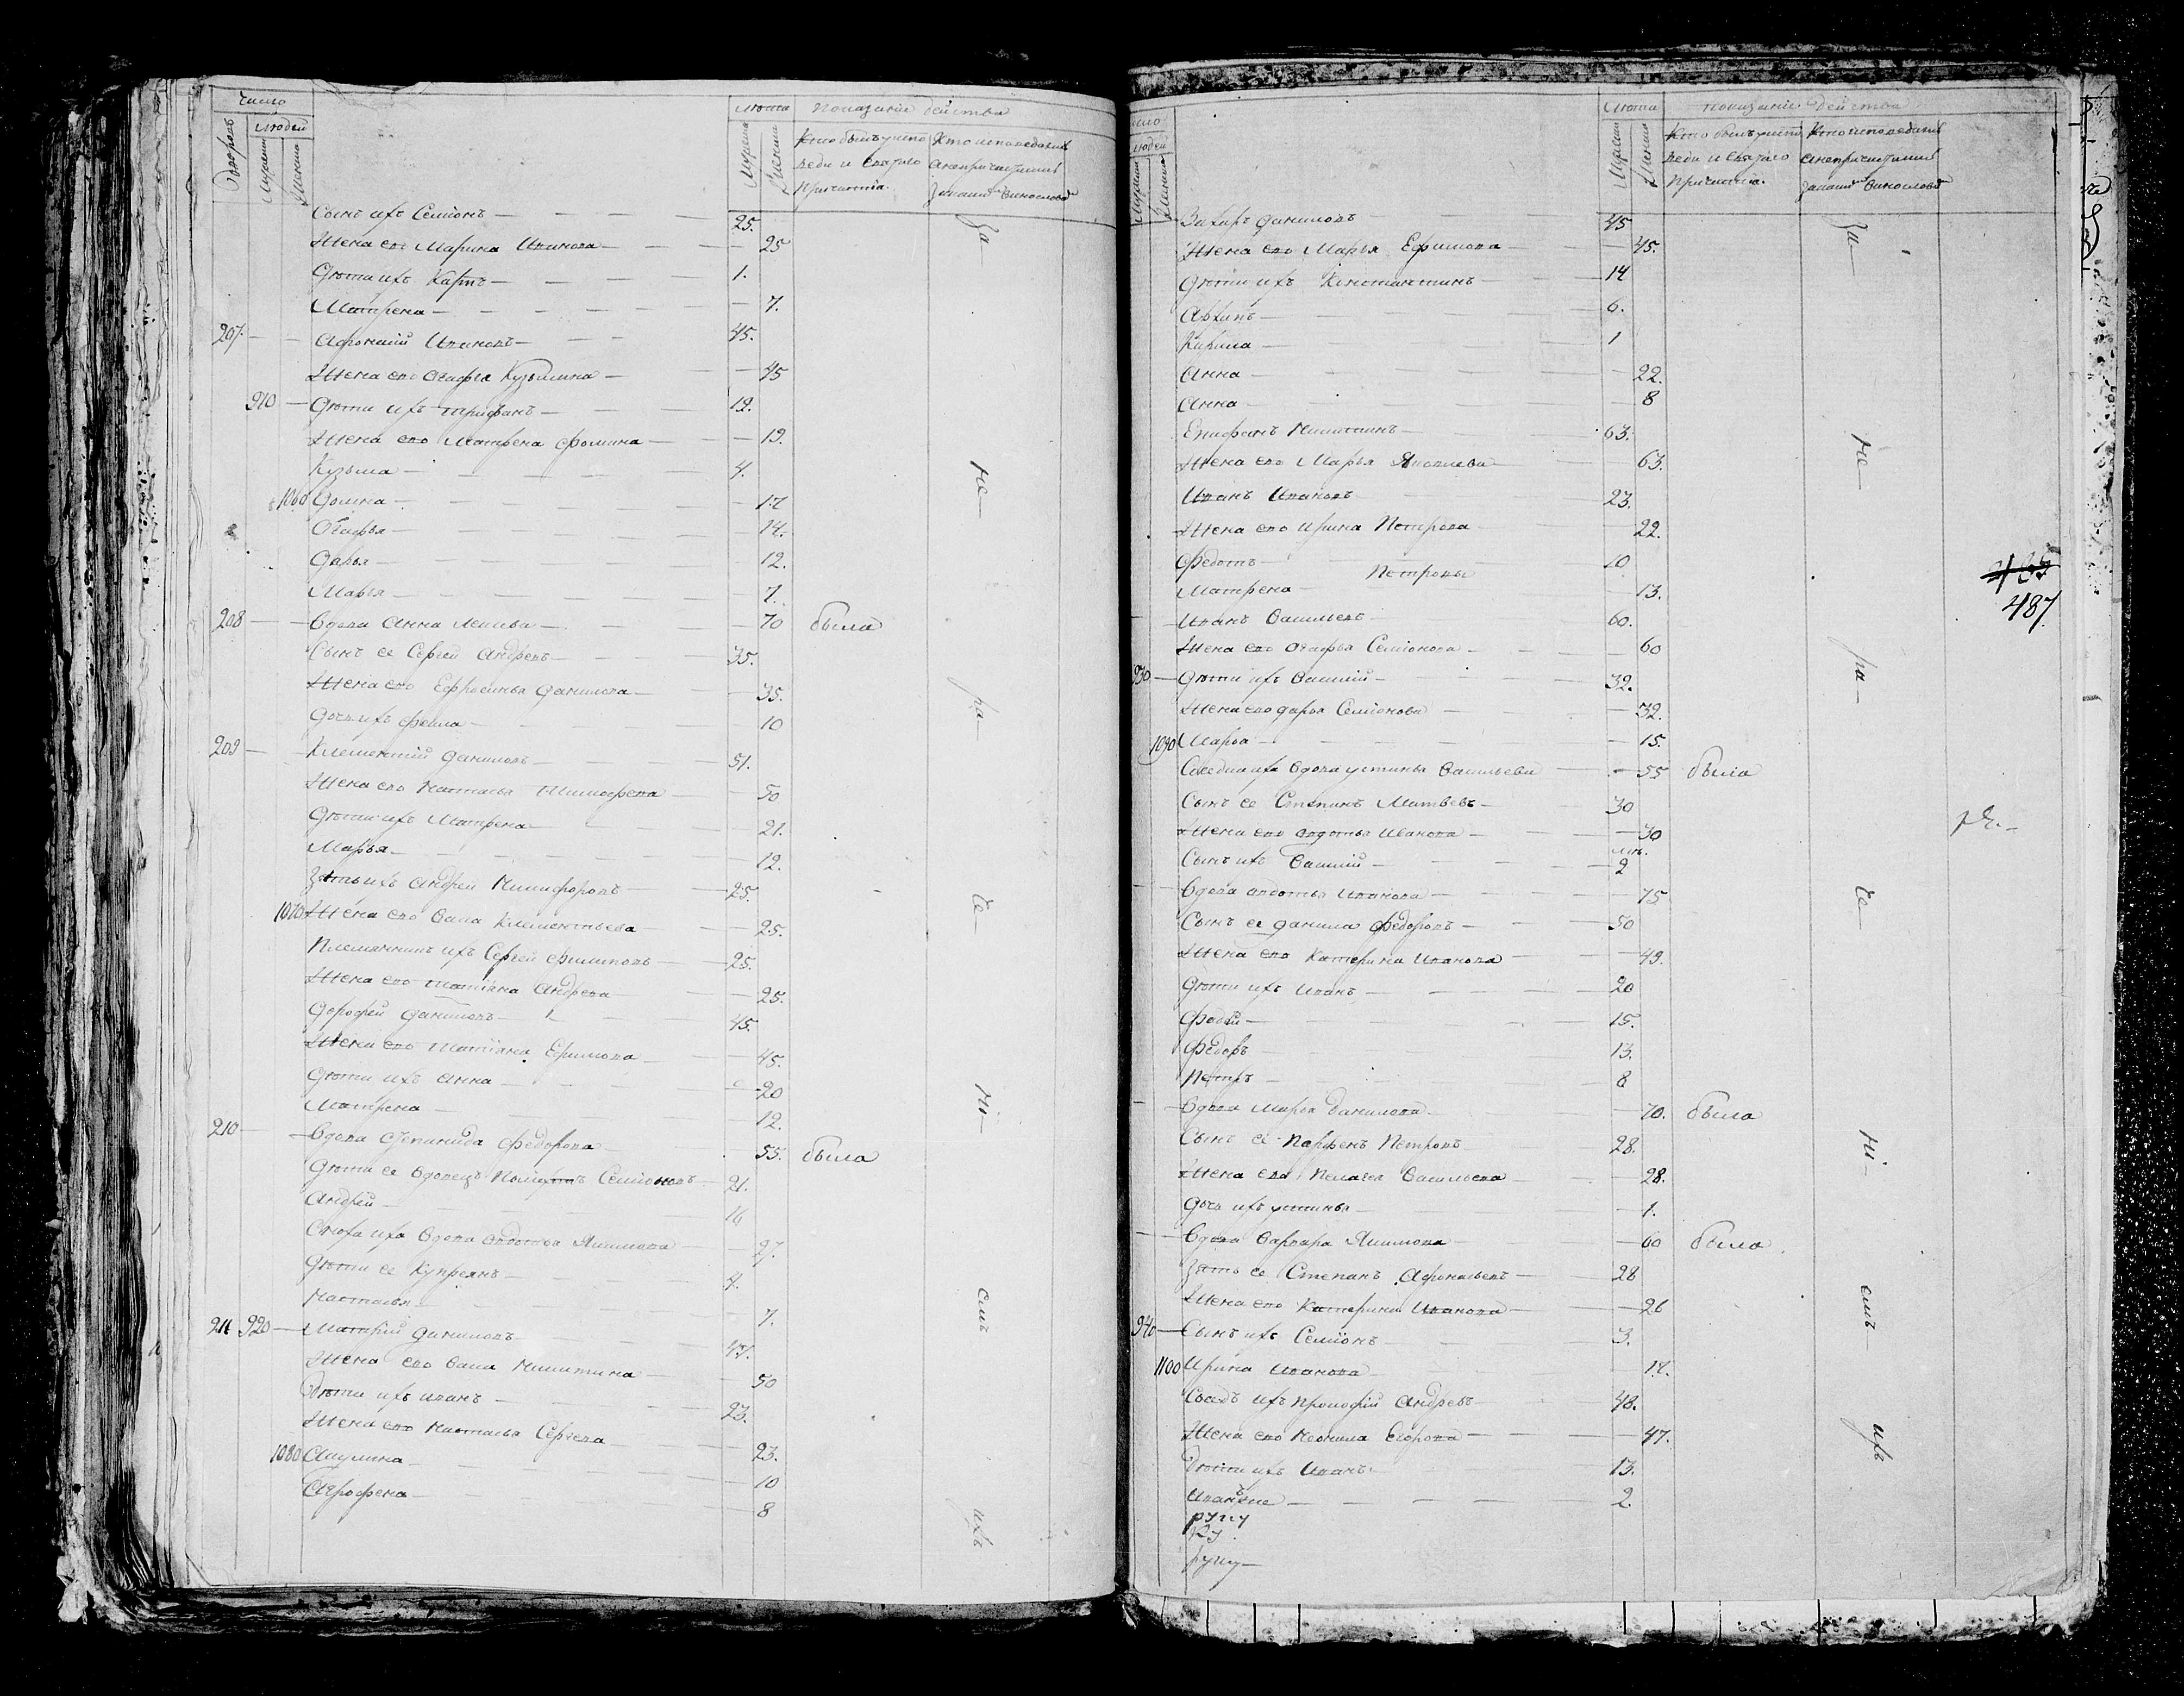 Число
Людей
Дворовъ
Мужеска
Женска
Лѣта
Мужеска
Женска
Показаніе действа
Кто былъ у испо
веди и святаго
причастія.
Кто исповедался
а непричастился
и за какимъ винословіемъ
Сынъ ихъ Семіонъ 25.
Жена его Марина Иванова 25
Дѣти ихъ Карпъ 1.
Матрена 7.
207 Афонасій Ивановъ 45.
Жена его Огафья Кузьмина 45
910 Дѣти ихъ Трифанъ 19.
Жена его Матрена Фомина 19.
Кузьма 4.
1060 Домна 17
Огафья 14.
Дарья 12.
Марья 7.
208 Вдова Анна 70 была
Сынъ ее Сергей Андревъ 35.
Жена его Ефросинья Данилова 35.
Дочь ихъ Фекла 10
209 Клементий Даниловъ 51.
Жена его Настасья Тимофева 50
Дѣти ихъ Матрена 21.
Марья 12.
Зять ихъ Андрей Никифоровъ 25.
1070 Жена его Васса Клементьева 25.
Племянникъ ихъ Сергей Филиповъ 25.
Жена его Татіана Андрева 25.
Дорофей Даниловъ 45.
Жена его Татіана Ефимова 45.
Дѣти ихъ Анна 20
Матрена 12.
210 Вдова Степанида Федорова 55. была
Дѣти ее вдовецъ Семіоновъ 21.
Андрей 16
Сноха ихъ вдова Авдотья Якимова 27.
Дѣти ее Купреянъ 4.
Настасья 7.
211 920 Матвій Даниловъ 47.
Жена его Васса Никитина 50
Дѣти ихъ Иванъ 23.
Жена его Настасья Сергева 23.
1080 Акулина 10
Агрофена 8
За не ра че ні емъ ихъ
Число
Людей
Мужеска
Женска
Лѣта
Мужеска
Женска
Показаніе действа
Кто былъ у испо
веди и святаго
причастія.
Кто исповедался
а непричастился
и за какимъ винословіемъ
Захаръ Даниловъ 45
Жена его Марья Ефимова 45.
Дѣти ихъ Константинъ 14
Архипъ 6.
Кирила 1
Анна 22.
Анна 8
Епифанъ Никитинъ 63.
Жена его Марья Яковлева 63.
Иванъ Ивановъ 23.
Жена его Ирина Петрова 22.
Федотъ 10
Петровы
Матрена 13.
Иванъ Васильевъ 60.
Жена его Огафья Семіонова 60
930 Дѣти ихъ Василій 32.
Жена его Дарья Семіонова 32.
1090 Марья 15.
Соседка ихъ вдова Устинья Васильева 55 была
Сынъ ее Степанъ Матвѣевъ 30
Жена его Авдотья Иванова 30
Сынъ ихъ Василій 2
Вдова Авдотья Иванова 75
Сынъ ее Данила Федоровъ 50
Жена его Катерина Иванова 49.
Дѣти ихъ Иванъ 20
Фадѣй 15.
Федоръ 13.
Петръ 8
Вдова Марья Данилова 70. была
Сынъ ее Парфенъ Петровъ 28.
Жена его Пелагея Васильева 28.
Дочь ихъ Устинья 1.
Вдова Варвара Якимова 60 была
Зять ее Степанъ Афонасьевъ 28
Жена его Катерина Иванова 26
940 Сынъ ихъ Семіонъ 3.
1100 Ирина Иванова 17.
Соседъ ихъ Прокофій Андревъ 48.
Жена его Неонила Егорова 47.
Дѣти ихъ Иванъ 13.
Иванъ же 2.
руку
ру
руку
За не ра че ні емъ ихъ
487